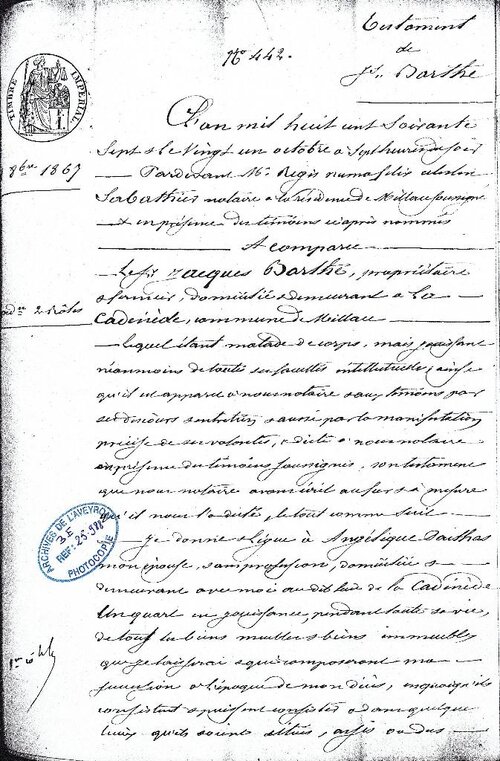 Testament
de
Js. Barthe
No 442.
TIMBRE IMPERIAL
8bre 1867
L'an mil huit cent soixante
sept & le vingt un octobre à sept heures du soir
Pardevant Me Regis numa felix
Sabathier notaire à la résidence de Millau soussigné
& en présence des témoins ci après nommés
A comparu
Le sr Jacques Barthe, propriétaire
& fermier, domicilié & demeurant à La
Cadenède, commune de Millau
Lequel étant malade de corps, mais jouissant
néanmoins de toutes ses facultés intellectuelles, ainsi
qu'il est apparu à nous notaire & aux témoins par
ses discours & entretiens & aussi par la manifestation
précise de ses volontés, a dicté à nous notaire
en présence des témoins soussignés, son testament
que nous notaire avons écrit au fur & à mesure
qu'il nous l'a dicté, le tout comme suit
Je donne & lègue à Angélique
mon épouse, sans profession, domiciliée &
demeurant avec moi au dit lieu de la Cadenède
Un quart en jouissance, pendant toute sa vie,
de tous les biens meubles & biens immeubles
que je laisserai & qui composeront ma
succession à l'époque de mon décès, en quoi qu'ils
consistent & puissent consister & dans quelque
lieux qu'ils soient situés, assis ou dus
ARCHIVES DE L'AVEYRON
3E
REF: 25.
PHOTOCOPIE